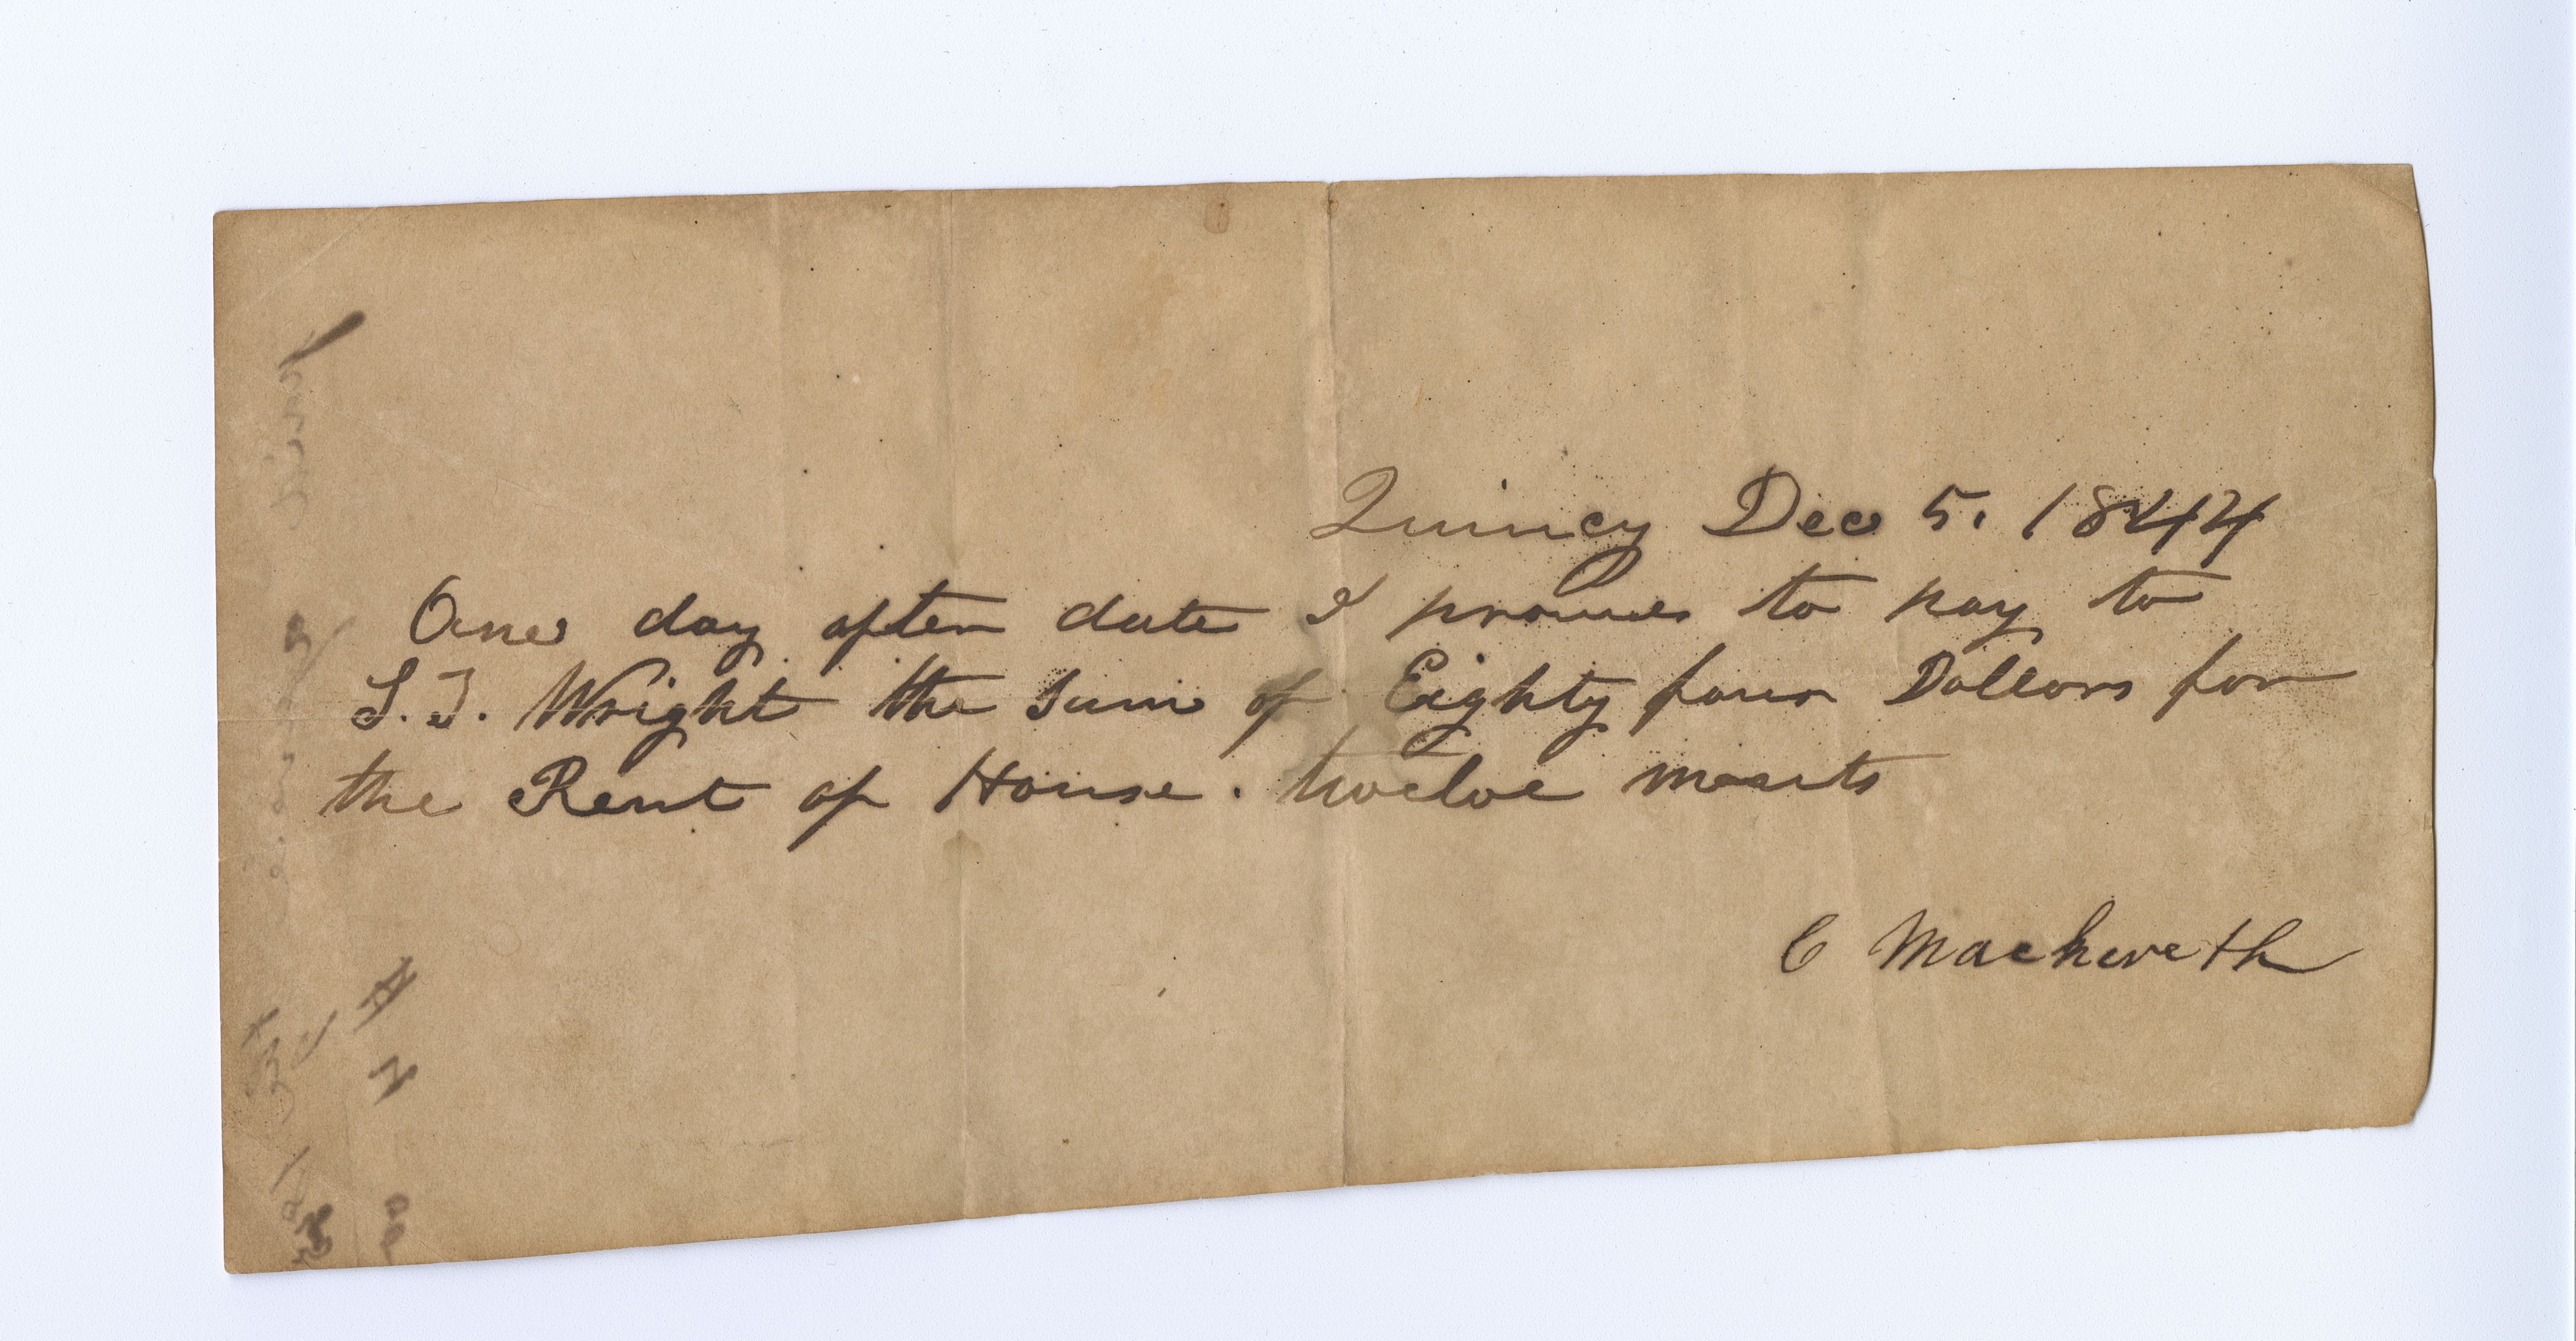 Quincy Dec 5. 1844
One day after date I promes to pay to
S. T. Wright the Sum of Eighty four Dollars for
the Rent of House. twelve monts
C Mackweth